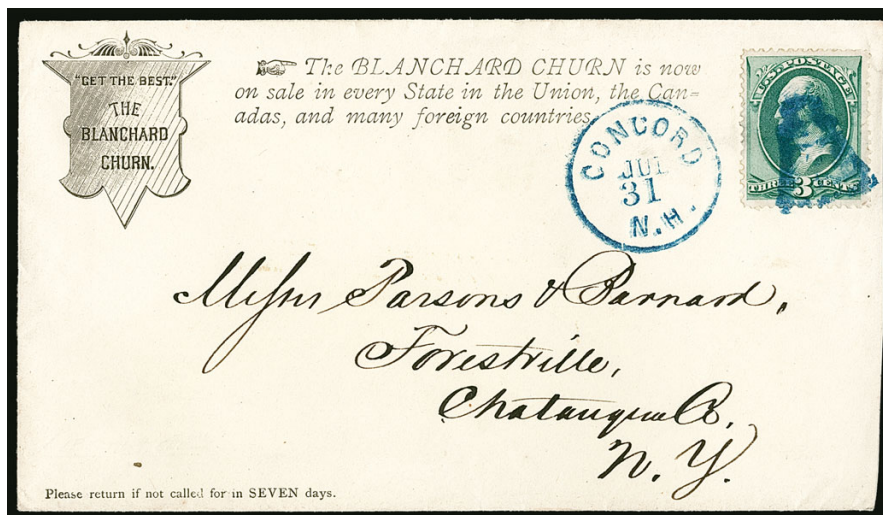 "GET THE BEST."
THE
BLANCHARD
CHURN.
☞ The BLANCHARD CHURN is now
on sale in every State in the Union, the Can=
adas, and many foreign countries.
CONCORD
JUL
31
N.H.
U.S. POSTAGE
THREE 3 CENTS
Messrs Parsons & Barnard,
Forestville,
Chatauqua Co.
N. Y.
Please return if not called for in SEVEN days.